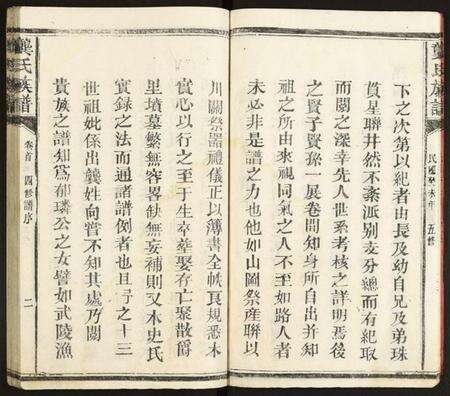 龔氏族譜
民國癸亥年 五修
下之次第以紀者由長及幼自兄及弟珠
貫星聯井然不紊派別支分總而有紀取
而閱之深幸先人世系考核之詳明焉後
之賢子賢孫一展卷間知身所自出并知
祖之所由來視同氣之人不至如路人者
未必非是譜之力也他如山圖祭產聯以
川關祭器禮儀正以簿書全帙良規悉本
實心以行之至于生卒葬娶存亡聚散爵
里墳墓繁無窄畧缺無妄補則又本史氏
實錄之法而通諸譜例者也且予之十三
世祖妣係出龔姓向嘗不知其處乃閱
貴族之譜知為郁璘公之女譬如武陵漁
龔氏族譜
卷首 四修譜序 二